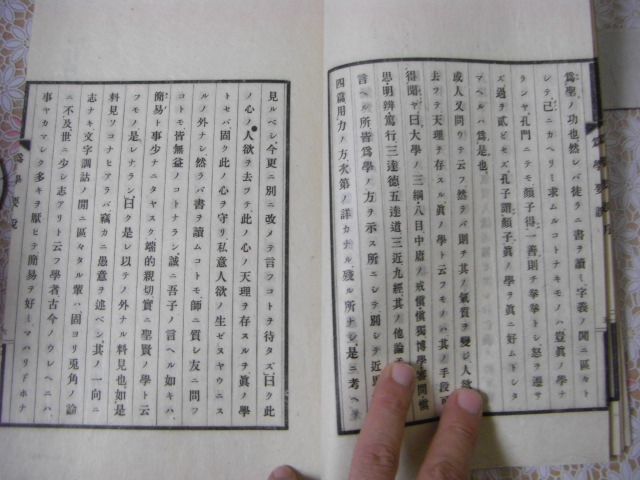 爲聖ノ功也然レバ徒ラニ書ヲ讀ミ字義ノ聞ニ區々ト
シテ己ニカヘリミ求ムルコトナキモノハ豈眞ノ學ナ
ランヤ孔門ニテモ顔子得一善則チ拳拳トシ怒ヲ遷サ
ズ過ヲ貳ビセズ孔子謂顔子眞ノ學ヲ眞ニ好ムトシタ
マヘルハ爲是也
或人又問ウテ云フ然ラバ則チ其ノ氣質ヲ變ジ人欲
去ツテ天理ヲ存スル眞ノ學ト云フモノハ其ノ手段
得聞ヤ曰大學ノ三綱八目中庸ノ戒愼恐獨博學審問愼
思明辨篤行三達德五達道三近九經其ノ他論
言ヘル所皆爲學ノ方ヲ示ス所ニシテ別シテ近思
四篇用力ノ方次第ノ詳カナル殘ル所ナシ是ニ考ヘ
爲學要說序
見ルベシ今更ニ別ニ改メテ言フコトヲ待タズ曰ク此
ノ心ノ人欲ヲ去ツテ此ノ心ノ天理ヲ存スルヲ眞ノ學
トセバ固ク此ノ心ヲ守リ私意人欲ノ生ゼヌヤウニス
ルノ外ナシ然ラバ書ヲ讀ムコトモ師ニ質シ友ニ問フ
コトモ皆無益ノコトナラン誠ニ吾子ノ言ヘル如キハ
簡易ト事少ナニタヤスク端的親切實ニ聖賢ノ學ト云
フモノハ是レナラン曰ク是レ以テノ外ナル料見也如是
料見フコナヒアラバ竊カニ愚意ヲ述ベシ其ノ一向ニ
志ナキ文字訓詁ノ聞ニ區々タル輩ハ固ヨリ兎角ノ論
ニ不及世ニ少シ志アリト云フ學者古今ノウヘニハ
事ヤカマシク多キヲ厭ヒテ簡易ヲ好ミマハリドホナ
爲學要說